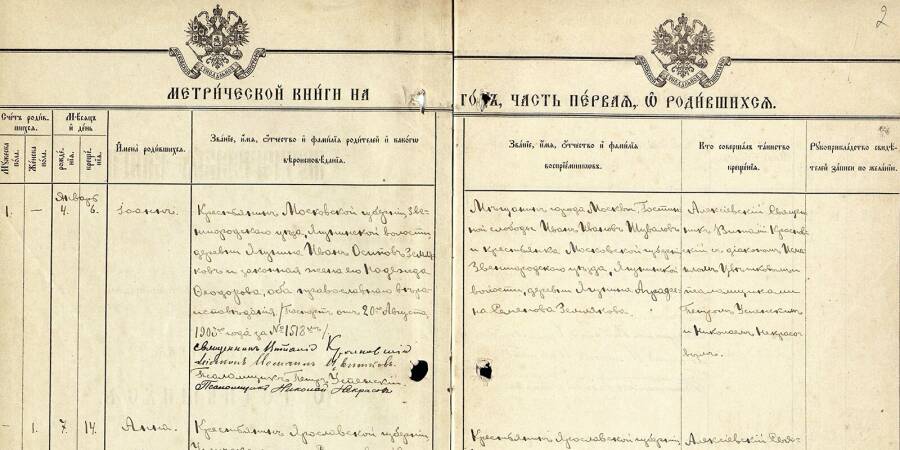 2
МЕТРИ́ЧЕСКОЙ КНИ́ГИ НА
ГО́ДЪ, ЧАСТЬ ПЕ́РВАЯ, Ѡ РОДИ́ВШИХСѦ.
Счетъ роди́вшихсѧ.
Мꙋжеска пола.
Же́нска пола.
Мѣсѧцъ и́ де́нь
рожде́нїѧ.
креще́нїѧ.
И́мена роди́вшихсѧ.
Зва́нїе, и́мѧ, ѻ́тчество и́ фами́лїѧ роди́телей и́ како́гѡ
вѣроисповѣ́данїѧ.
Зва́нїе, и́мѧ, ѻ́тчество и́ фами́лїѧ
воспрїе́мниковъ.
Кто̀ соверша́лъ та́инство
креще́нїѧ.
Рꙋкоприкла́дство свидѣ́-
телей за́писи по жела́нїю.
Январь
1. — 4. 6. Іоаннъ.
Крестьянинъ Московской губерніи, Зве-
нигородскаго уѣзда, Ягунинской волости,
деревни Ягунина Иванъ Осиповъ Земля-
ковъ и законная жена его Надежда
Ѳеодорова, оба православнаго вѣро-
исповѣданія /Паспортъ отъ 20го Августа
года за № 1518мъ/
Священникъ Виталій
Діаконъ
Псаломщикъ Петръ Успенскій.
Псаломщикъ Николай Некрасовъ
Мѣщанинъ города Москвы, Гостин-
ной слободы Иванъ Ивановъ Шуваловъ
и крестьянка Московской губерніи
Звенигородскаго уѣзда, Ягунинской
волости, деревни Ягунина
на Семенова Землякова.
Алексіевскій Священ-
никъ Виталій
съ діакономъ
псаломщиками
Петромъ Успенскимъ
и Николаемъ Некрасо-
вымъ.
— 1. 7. 14. Анна.
Крестьянинъ Ярославской губерніи
Крестьянинъ Ярославской губерніи
Алексіевскій Свя-